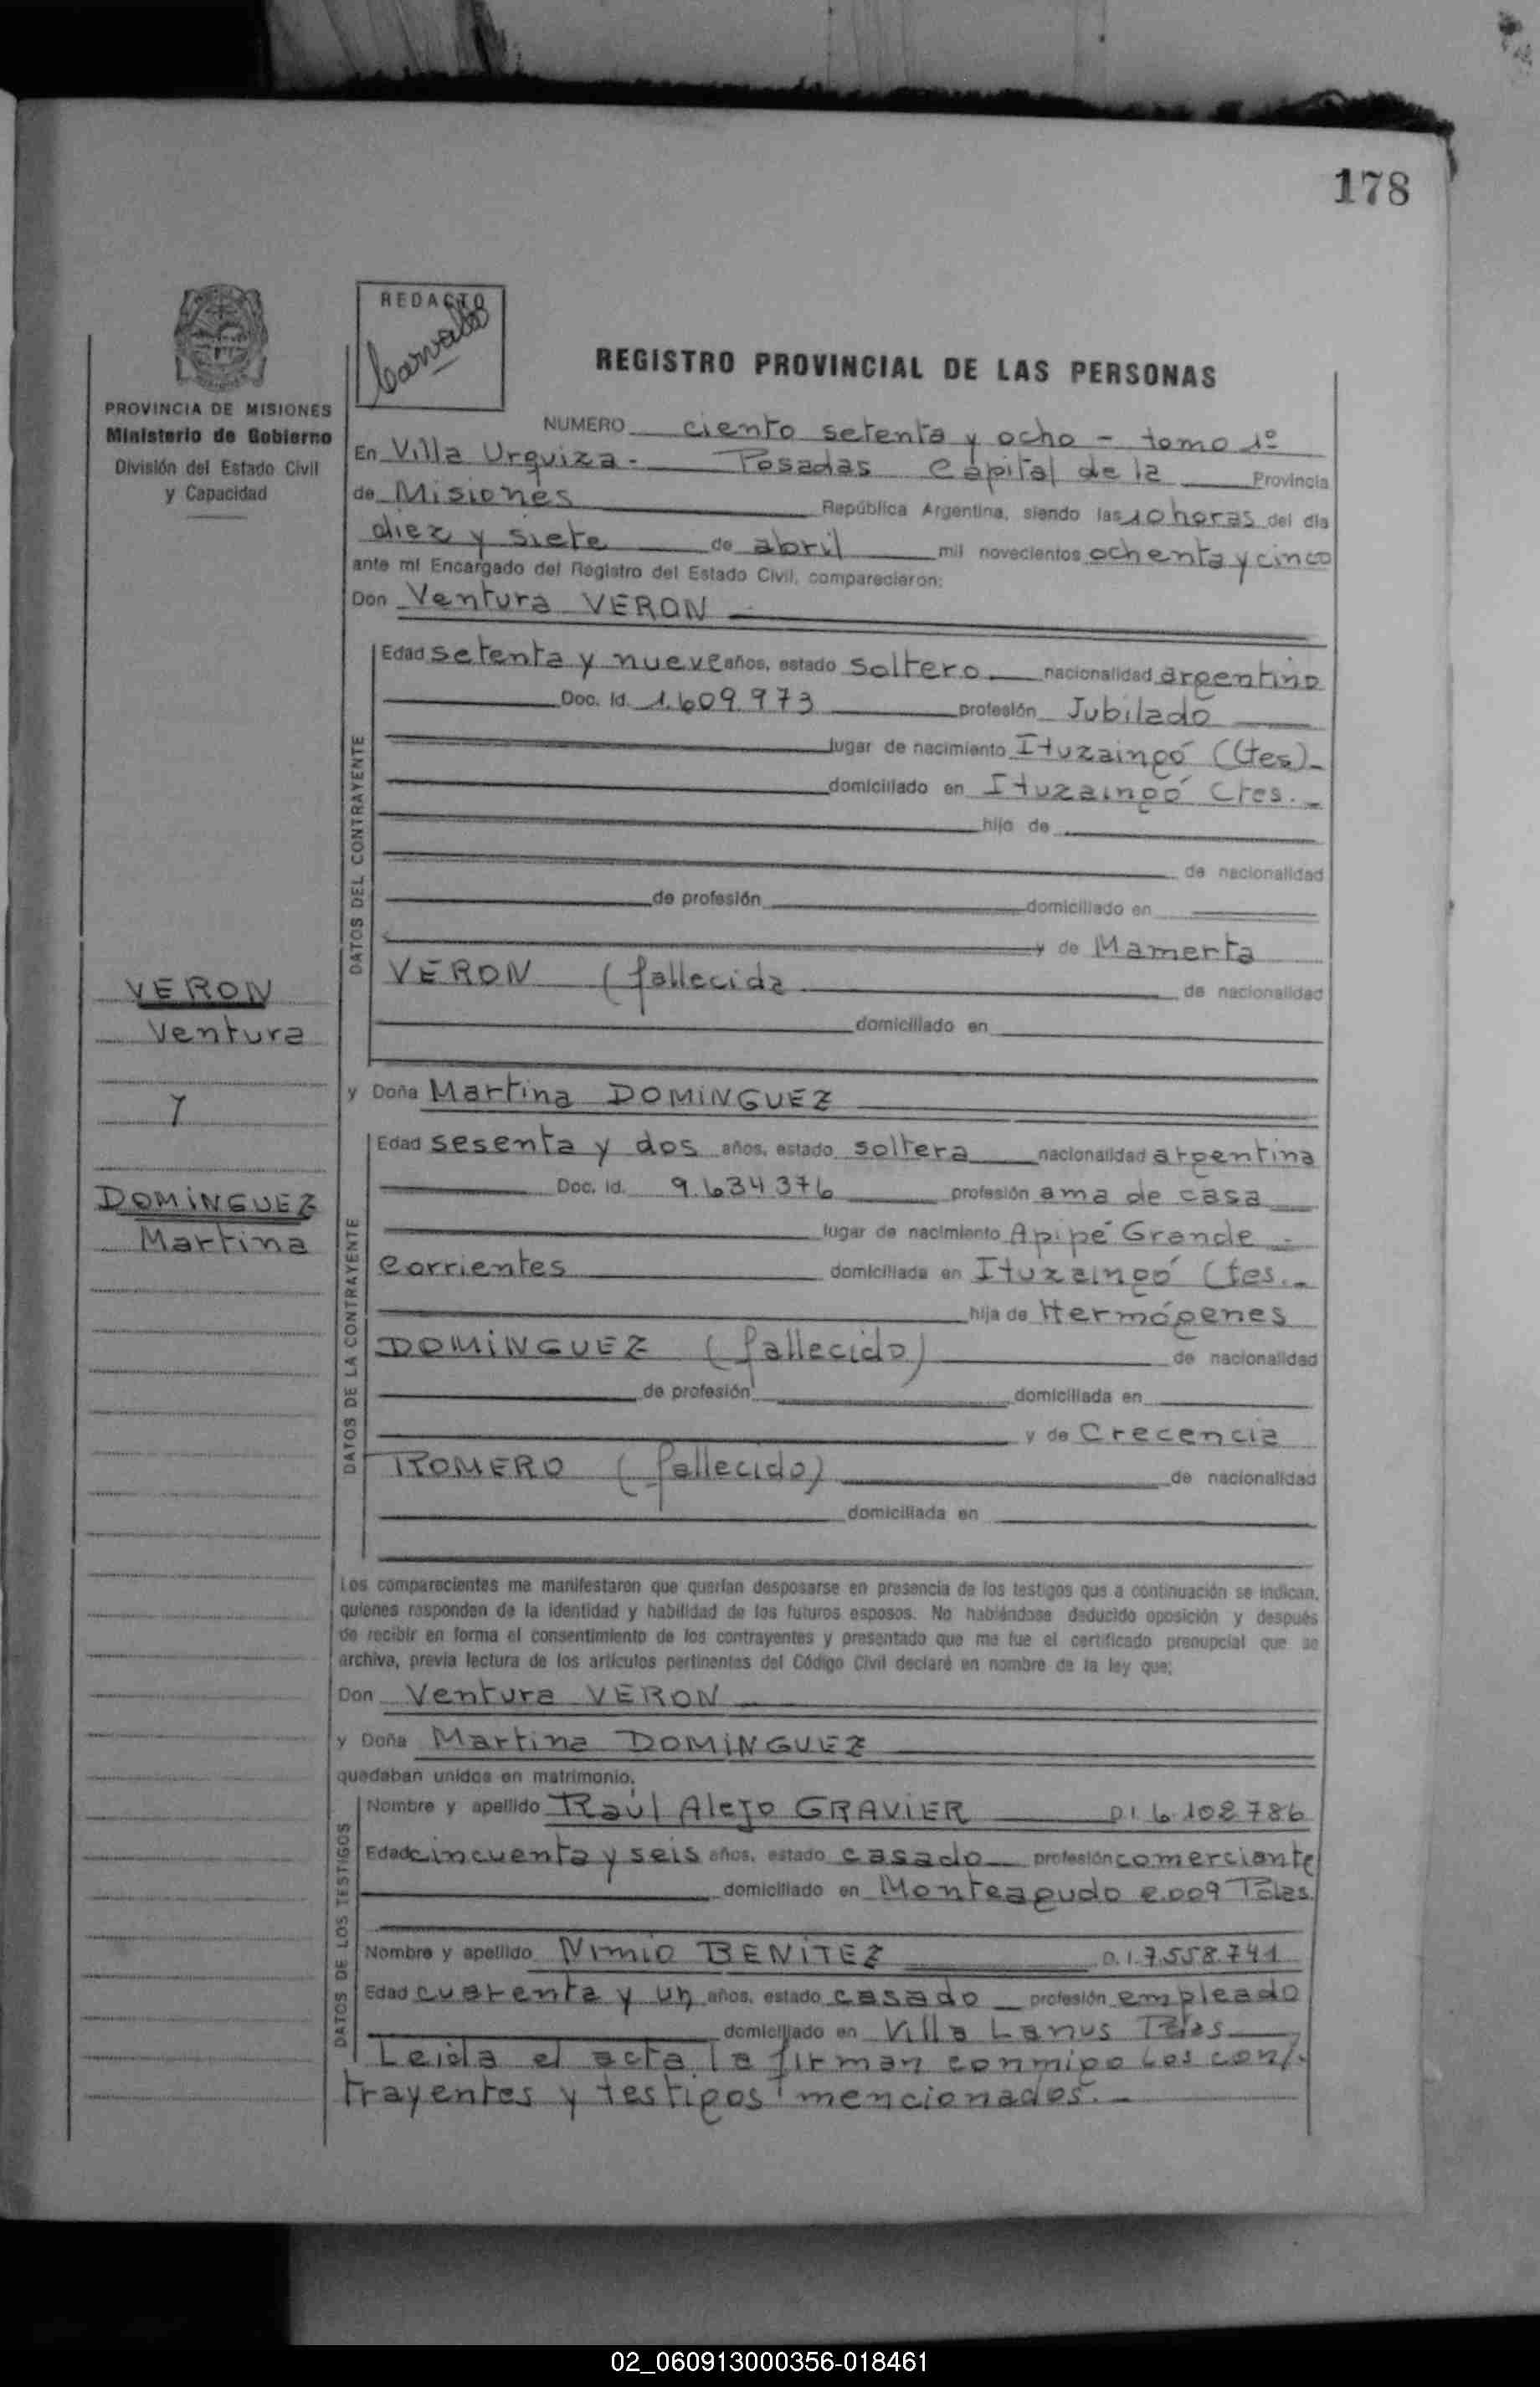 178
REDACTO
Carvallo
PROVINCIA DE MISIONES
Ministerio de Gobierno
División del Estado Civil
y Capacidad
REGISTRO PROVINCIAL DE LAS PERSONAS
NUMERO ciento setenta y ocho - tomo 1º
En Villa Urquiza - Posadas Capital de la Provincia
de Misiones República Argentina, siendo las 10 horas del día
diez y siete de abril mil novecientos ochenta y cinco
ante mí Encargado del Registro del Estado Civil, comparecieron:
Don Ventura VERON
DATOS DEL CONTRAYENTE
Edad setenta y nueve años, estado soltero nacionalidad argentino
Doc. Id. 1.609.973 profesión Jubilado
lugar de nacimiento Ituzaingó (Ctes).-
domiciliado en Ituzaingó Ctes.-
hijo de
de nacionalidad
de profesión domiciliado en
y de Mamerta
VERON (fallecida de nacionalidad
domiciliado en
VERON
Ventura
Y
DOMINGUEZ
Martina
y Doña Martina DOMINGUEZ
DATOS DE LA CONTRAYENTE
Edad sesenta y dos años, estado soltera nacionalidad argentina
Doc. Id. 9.634.376 profesión ama de casa
lugar de nacimiento Apipé Grande -
Corrientes domiciliada en Ituzaingó Ctes.-
hija de Hermógenes
DOMINGUEZ (fallecido) de nacionalidad
de profesión domiciliada en
y de Crecencia
ROMERO (fallecido) de nacionalidad
domiciliada en
Los comparecientes me manifestaron que querían desposarse en presencia de los testigos que a continuación se indican,
quienes responden de la identidad y habilidad de los futuros esposos. No habiéndose deducido oposición y después
de recibir en forma el consentimiento de los contrayentes y presentado que me fue el certificado prenupcial que se
archiva, previa lectura de los artículos pertinentes del Código Civil declaré en nombre de la ley que:
Don Ventura VERON
y Doña Martina DOMINGUEZ
quedaban unidos en matrimonio.
DATOS DE LOS TESTIGOS
Nombre y apellido Raúl Alejo GRAVIER D.I. 6.102.786
Edad cincuenta y seis años, estado casado profesión comerciante
domiciliado en Monteagudo 2.009 Pdas.
Nombre y apellido Nimio BENITEZ D.I. 7.558.741
Edad cuarenta y un años, estado casado profesión empleado
domiciliado en Villa Lanus Pdas
Leida el acta la firman conmigo los con/.
trayentes y testigos mencionados.-
02_060913000356-018461